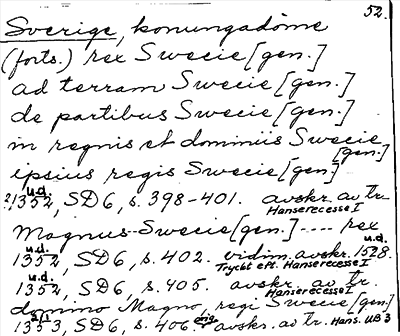 52.
Sverige, konungadöme
(forts.) rex Swecie [gen.]
ad terram Swecie [gen.]
de partibus Swecie [gen.]
in regnis et dominiis Swecie
[gen.]
ipsius regis Swecie [gen.]
u.d.
?1352, SD6, s. 398-401. avskr. av tr.
Hanserecesse I
Magnus Swecie [gen.] .... rex
u.d. u.d.
1352, SD6, s. 402. vidim. avskr. 1528.
Tryckt eft. Hanserecesse I
u.d.
1352, SD6, s. 405. avskr. av tr.
Hanserecesse I
domino Magno, regi Swecie [gen.]
1353, SD6, s. 406. orig. avskr. av tr. Hans. UB 3